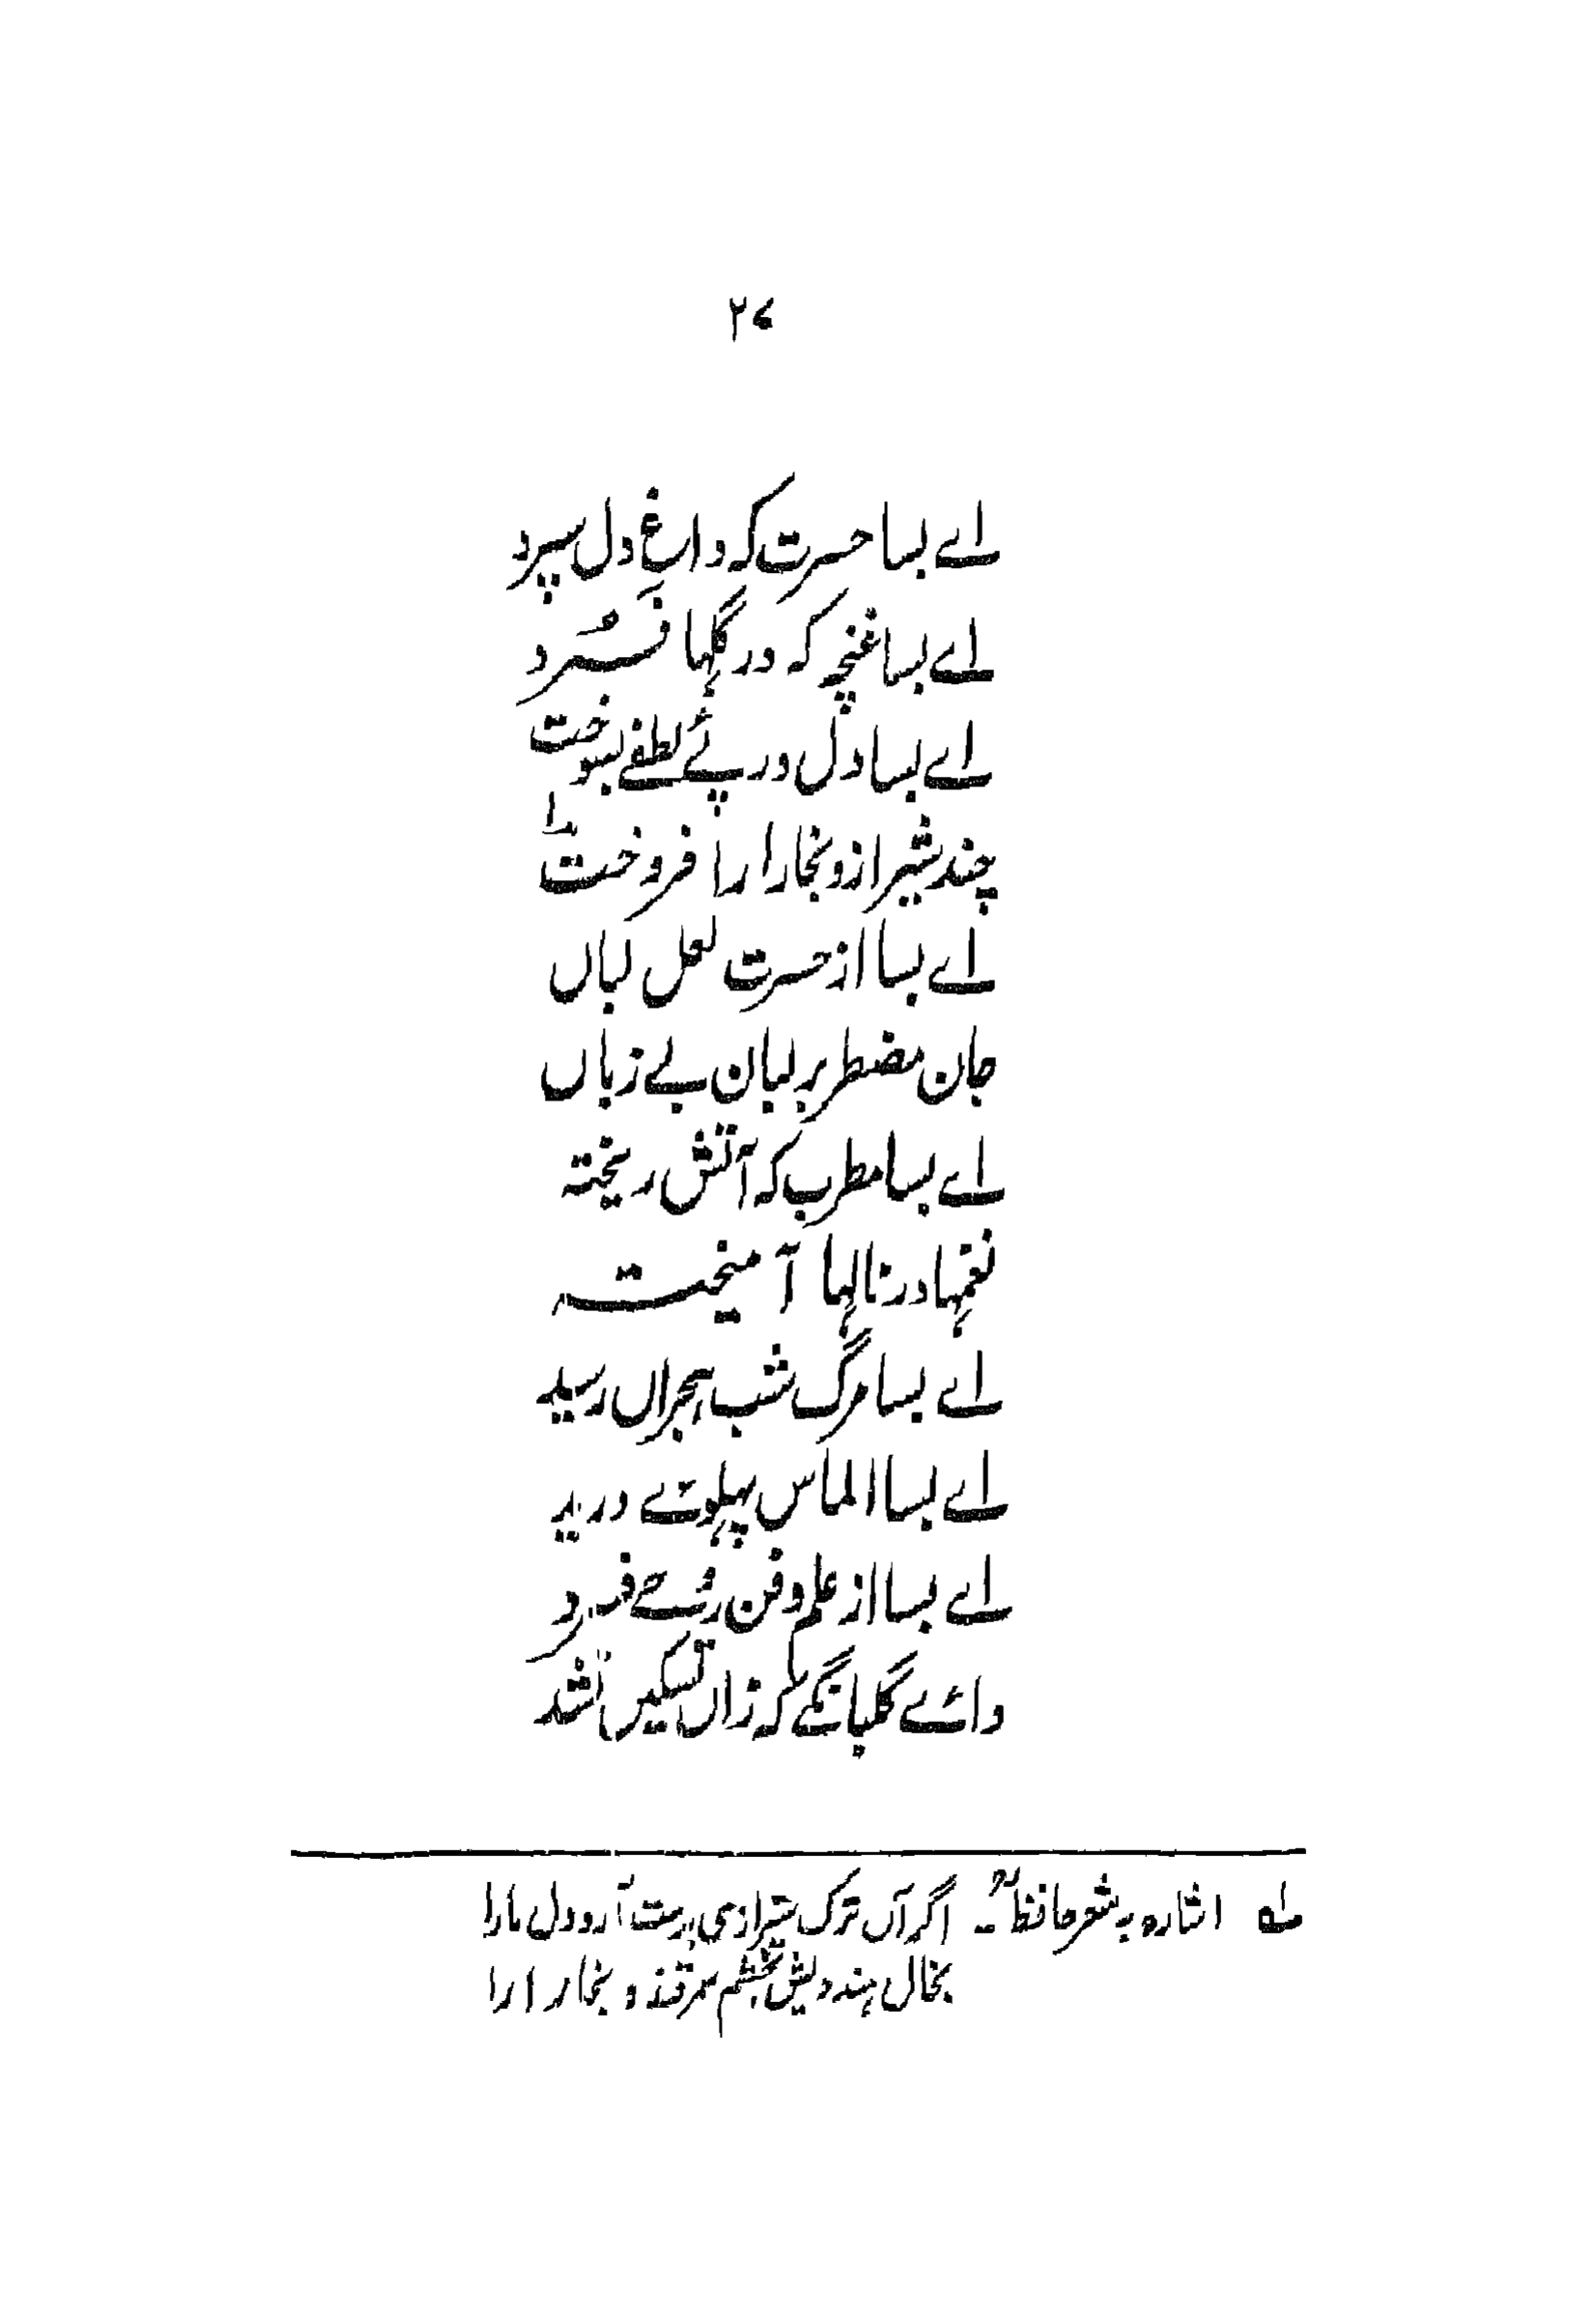 ۲۷
اے بسا حسرت کہ داغِ دل سپرد
اے بسا غنچہ کہ در گلہا فَسُرد
اے بسا دل در پئے لطفے بسوخت
چند شیراز و بخارا را فروخت ؎۱
اے بسا از حسرت لعل لباں
جان مضطر بر لبان بے زباں
اے بسا مطرب کہ آتش ریختہ
نغمہا در نالہا آمیختہ
اے بسا مرگ شب ہجراں رسید
اے بسا الماس پہلوئے درید
اے بسا از علم و فن روئے فسرد
وائے گلبانگے کہ زاں تسکیں نشد
؎۱ اشارہ بہ شعر حافظؒ:۔ اگر آں ترک شیرازی بدست آرد دل مارا
بخال ہندویش بخشم سمرقند و بخارا را